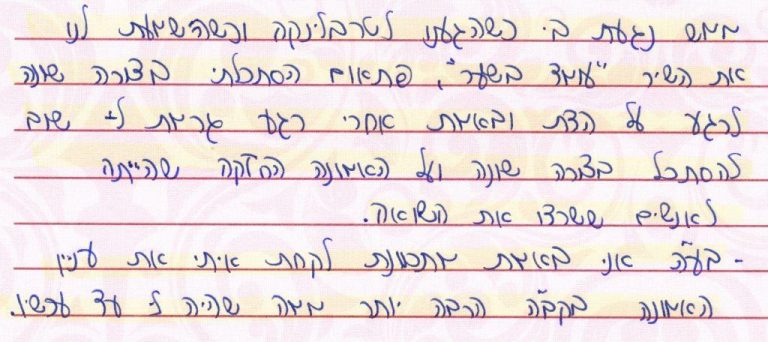 ממש נגעת בי כשהגענו לטרבלינקה וכשהשמעת לנו
את השיר "עומד בשער", פתאום הסתכלתי בצורה שונה
לרגע על הדת ובאמת אחרי רגע גרמת לי שוב
להסתכל בצורה שונה ועל האמונה החזקה שהייתה
לאנשים ששרדו את השואה.
- בע"ה אני באמת מתכוונת לקחת איתי את עניין
האמונה בקב"ה הרבה יותר ממה שהיה לי עד עכשיו.